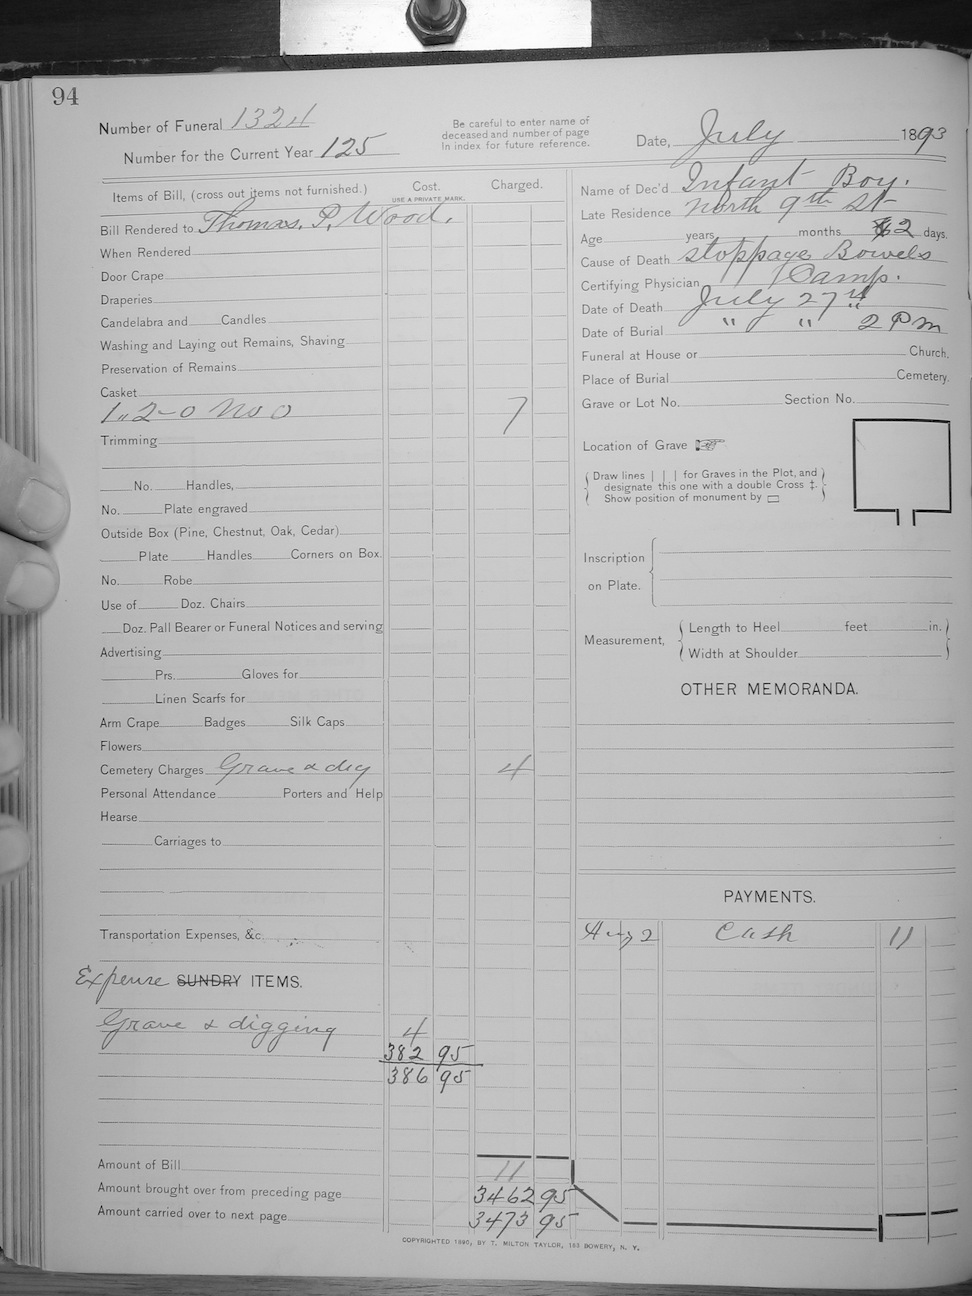 94
Number of Funeral 1324
Number for the Current Year 125
Be careful to enter name of
deceased and number of page
In index for future reference.
Date, July 1893
Items of Bill, (cross out items not furnished.) Cost. Charged.
USE A PRIVATE MARK.
Bill Rendered to Thomas. P. Wood.
When Rendered
Door Crape
Draperies
Candelabra and Candles
Washing and Laying out Remains, Shaving
Preservation of Remains
Casket
1,, 2-0 No 0 7
Trimming
No. Handles,
No. Plate engraved
Outside Box (Pine, Chestnut, Oak, Cedar)
Plate Handles Corners on Box.
No. Robe
Use of Doz. Chairs
Doz. Pall Bearer or Funeral Notices and serving
Advertising
Prs. Gloves for
Linen Scarfs for
Arm Crape Badges Silk Caps
Flowers
Cemetery Charges Grave & dig 4
Personal Attendance Porters and Help
Hearse
Carriages to
Transportation Expenses, &c.
Expense SUNDRY ITEMS.
Grave & digging 4
382 95
386 95
Amount of Bill 11
Amount brought over from preceding page 3462 95
Amount carried over to next page 3473 95
Name of Dec'd Infant Boy.
Late Residence North 9th St
Age years months 2 days.
Cause of Death stoppage Bowels
Certifying Physician Camp.
Date of Death July 27
Date of Burial " " 2 Pm
Funeral at House or Church,
Place of Burial Cemetery.
Grave or Lot No. Section No.
Location of Grave ☞
Draw lines | | | for Graves in the Plot, and
designate this one with a double Cross ‡.
Show position of monument by ▭
Inscription
on Plate.
Measurement, Length to Heel feet in.
Width at Shoulder
OTHER MEMORANDA.
PAYMENTS.
Aug 2 Cash 11
COPYRIGHTED 1890, BY T. MILTON TAYLOR, 183 BOWERY, N. Y.